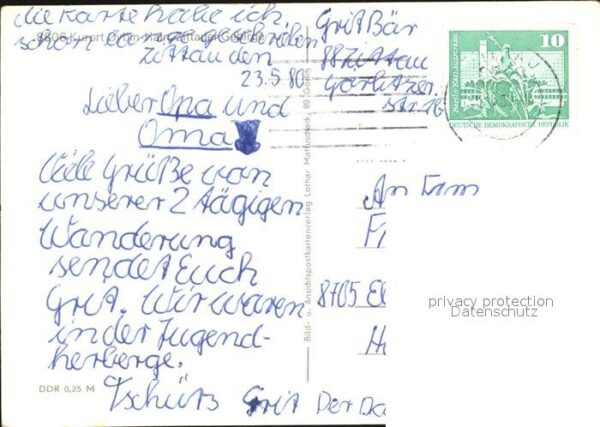 die Karte habe ich
schon
8806 Kurort Oybin
Zittau den
23.5.80
Lieber Opa und
Oma
Viele Grüße von
unserer 2 tägigen
Wanderung
sendet Euch
Grit. Wir waren
in der Jugend-
herberge.
Tschüß Grit Der Da
DDR 0,25 M
Bild- u. Ansichtspostkartenverlag Lothar
Grit Bär
88 Zittau
Görlitzer
Str. 16
10
Berlin
DEUTSCHE DEMOKRATISCHE REPUBLIK
An Fam
F
8705 E
H
privacy protection
Datenschutz